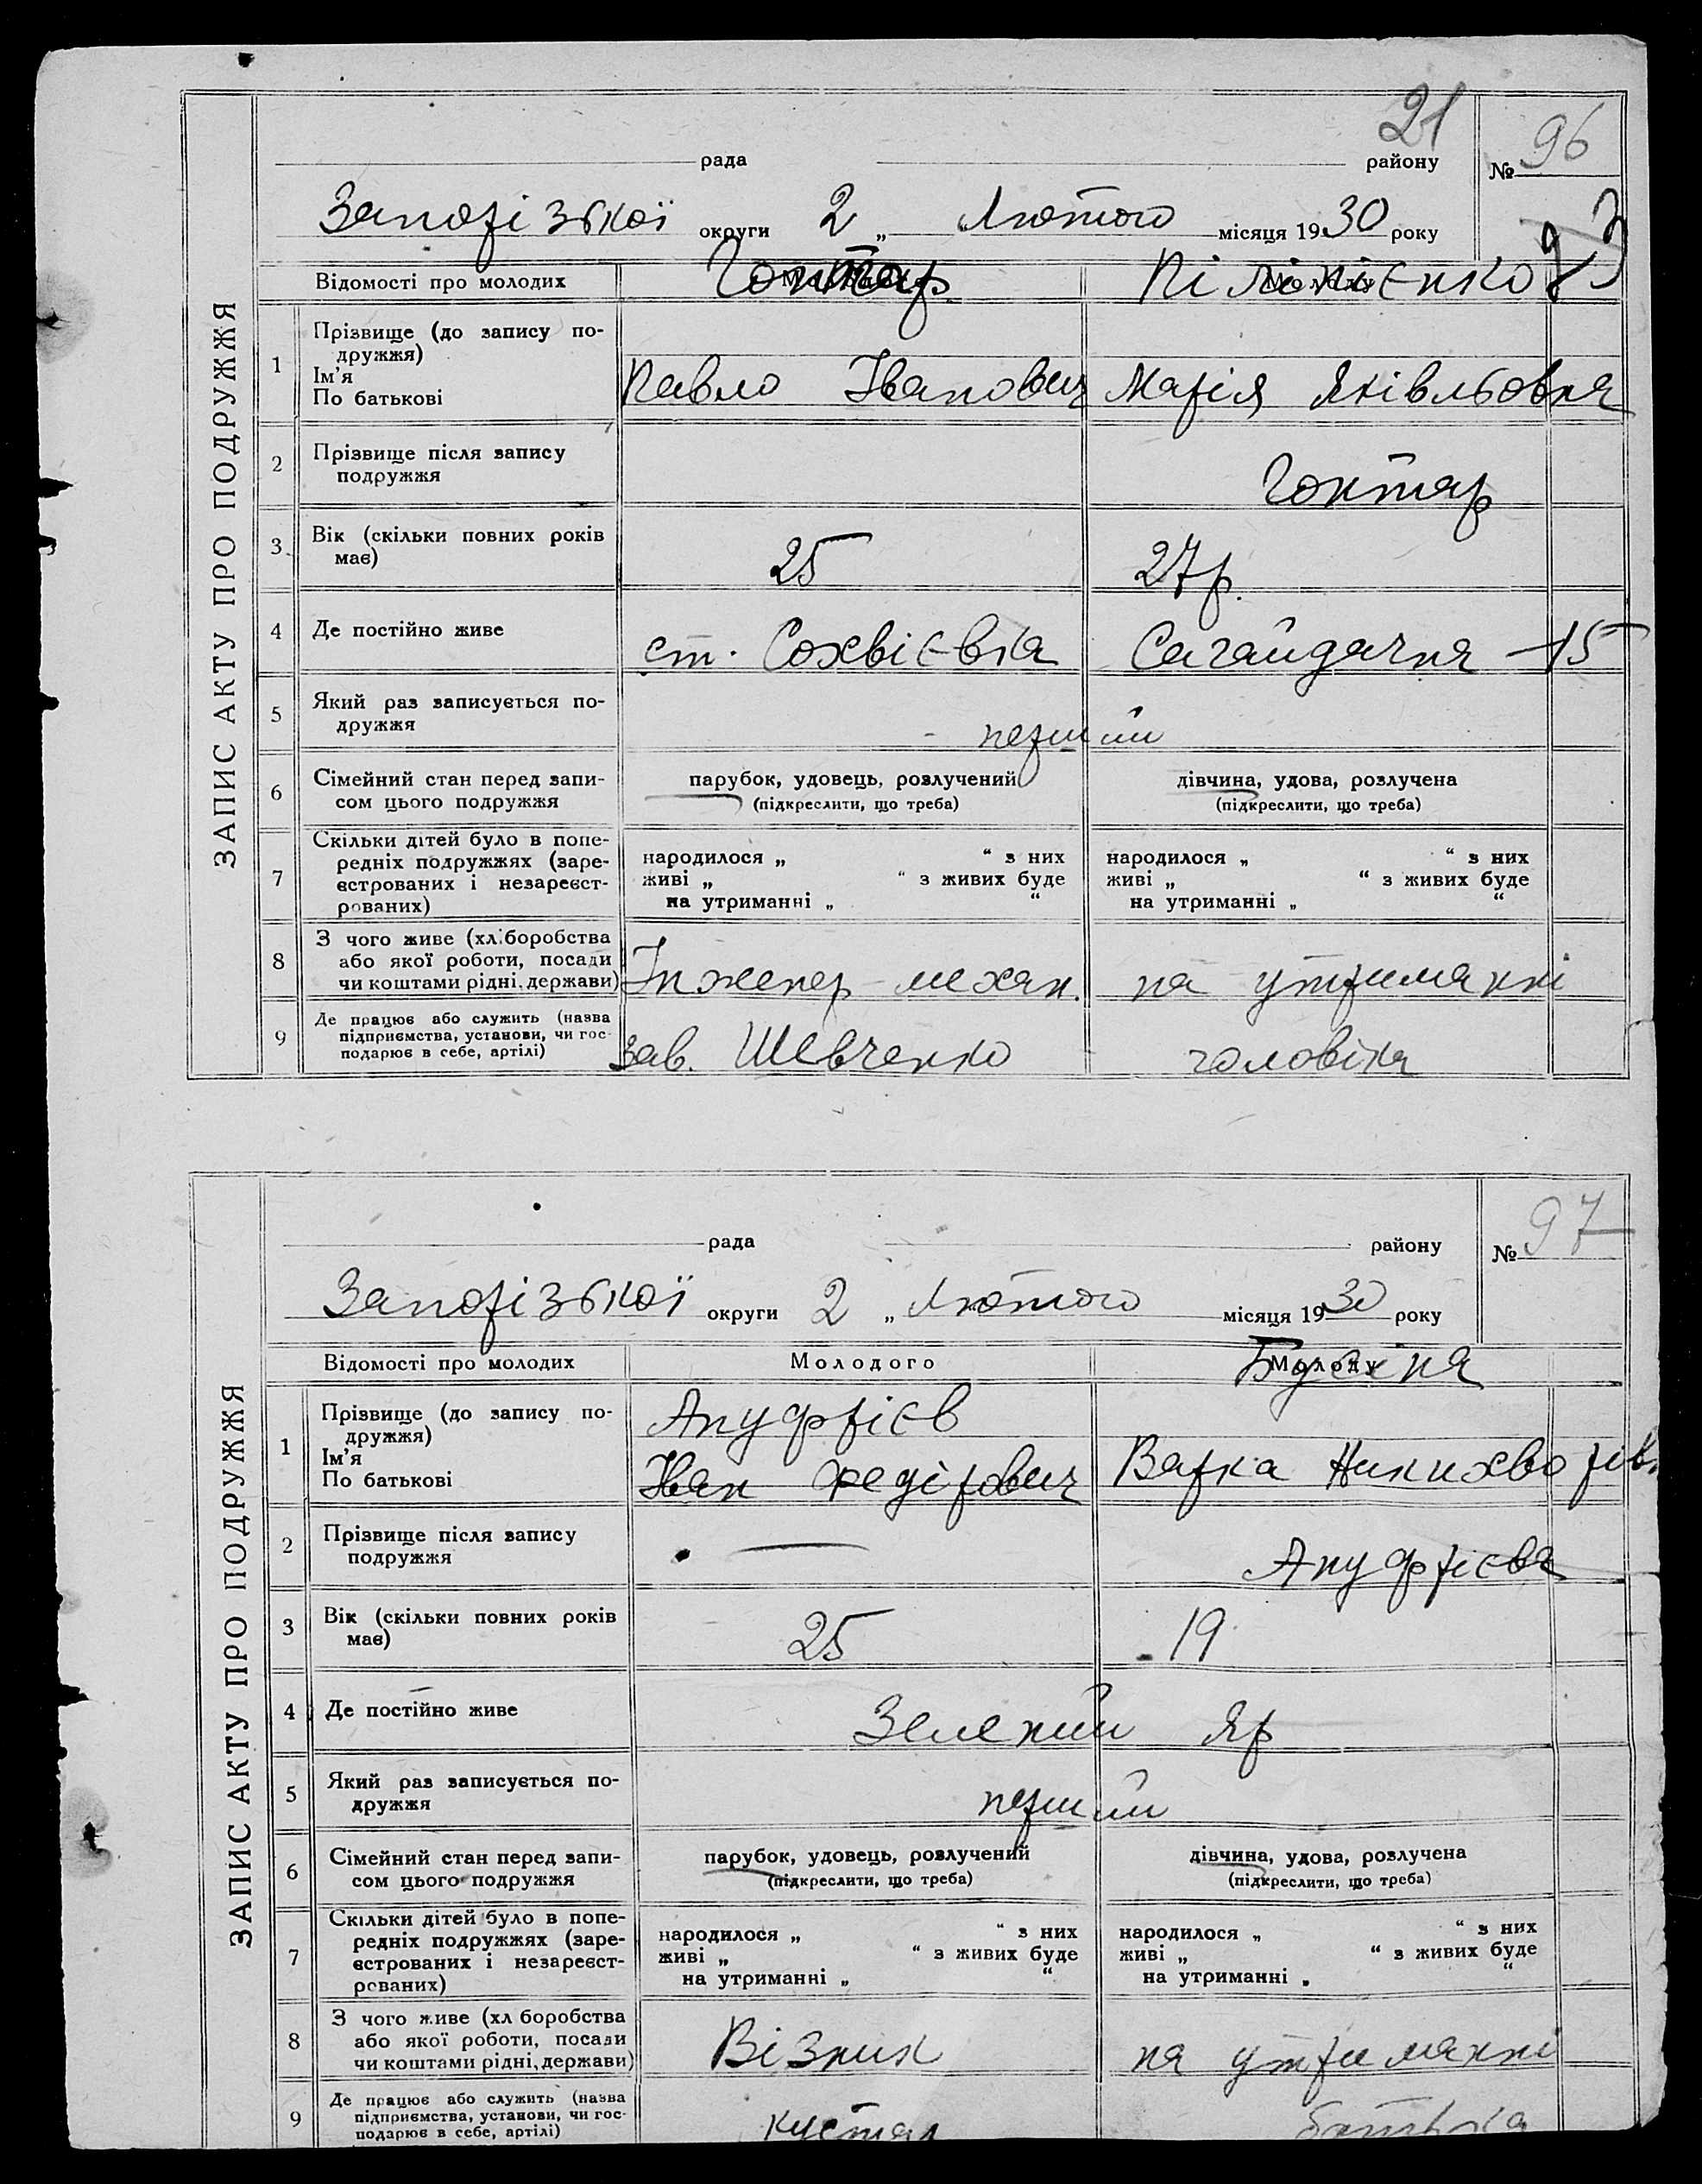 21
рада району № 96
Запорізької округи 2 „ Лютого місяця 1930 року
ЗАПИС АКТУ ПРО ПОДРУЖЖЯ
Відомості про молодих
Гонтар
1 Прізвище (до запису по-
дружжя)
Ім'я
По батькові
Павло Іванович Марія Яківльовна
2 Прізвище після запису
подружжя
Гонтар
3 Вік (скільки повних років
має)
25 27 р.
4 Де постійно живе ст. Сохвієвка Сагайдачна 15
5 Який раз записується по-
дружжя
перший
6 Сімейний стан перед запи-
сом цього подружжя
парубок, удовець, розлучений
(підкреслити, що треба)
дівчина, удова, розлучена
(підкреслити, що треба)
7 Скільки дітей було в попе-
редніх подружжях (заре-
єстрованих і незареєст-
рованих)
народилося „ “ з них
живі „ “ з живих буде
на утриманні „ “
народилося „ “ з них
живі „ “ з живих буде
на утриманні „ “
8 З чого живе (хліборобства
або якої роботи, посади
чи коштами рідні, держави)
Інженер-механ. на утриманні
9 Де працює або служить (назва
підприємства, установи, чи гос-
подарює в себе, артілі)
Зав. Шевченко чоловіка
рада району № 97
Запорізької округи 2 „ Лютого місяця 1930 року
ЗАПИС АКТУ ПРО ПОДРУЖЖЯ
Відомості про молодих Молодого
1 Прізвище (до запису по-
дружжя)
Ім'я
По батькові
Ануфрієв
Іван Федірович Варка Никихворівн
2 Прізвище після запису
подружжя
— Ануфрієва
3 Вік (скільки повних років
має)
25 19
4 Де постійно живе Зелений Яр
5 Який раз записується по-
дружжя
перший
6 Сімейний стан перед запи-
сом цього подружжя
парубок, удовець, розлучений
(підкреслити, що треба)
дівчина, удова, розлучена
(підкреслити, що треба)
7 Скільки дітей було в попе-
редніх подружжях (заре-
єстрованих і незареєст-
рованих)
народилося „ “ з них
живі „ “ з живих буде
на утриманні „ “
народилося „ “ з них
живі „ “ з живих буде
на утриманні „ “
8 З чого живе (хл боробства
або якої роботи, посади
чи коштами рідні, держави)
Візник на утриманні
9 Де працює або служить (назва
підприємства, установи, чи гос-
подарює в себе, артілі)
кустар батька